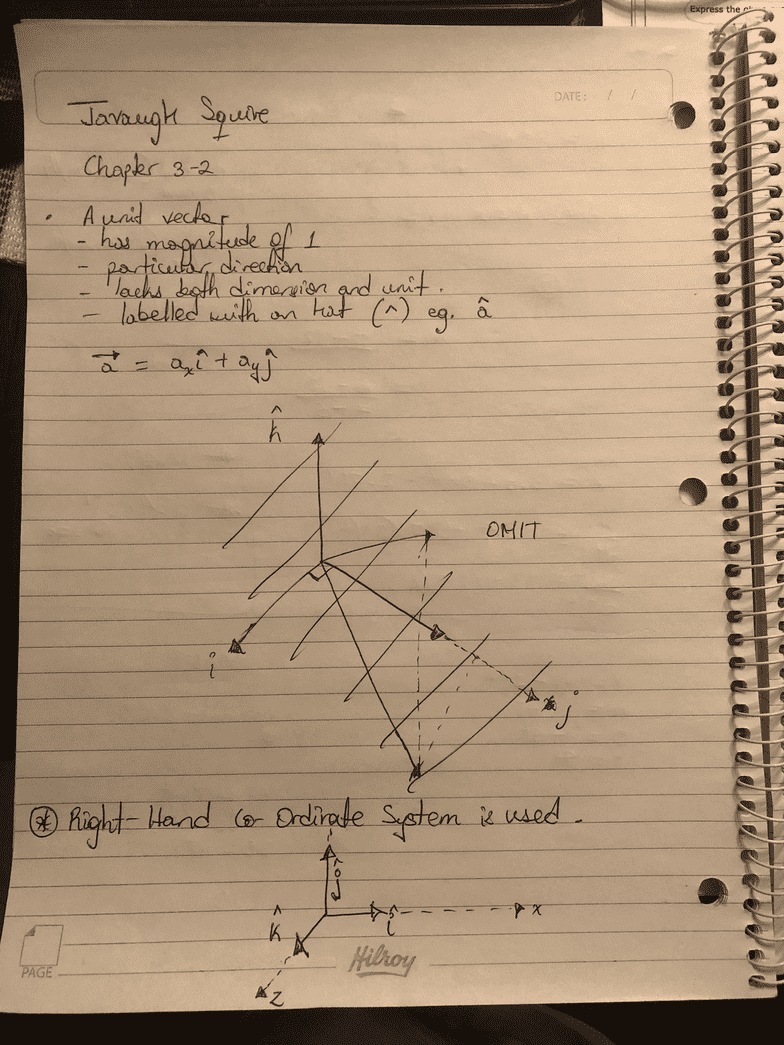 Express the
DATE: / /
Javaugh Squire
Chapter 3-2
• A unit vector
- has magnitude of 1
- particular direction
- lacks both dimension and unit.
- labelled with an hat (^) eg. â
a⃗ = aₓî + aᵧĵ
k̂
OMIT
i
j
⊛ Right-Hand Co-Ordinate System is used.
ĵ
k̂ î x
z
PAGE
Hilroy